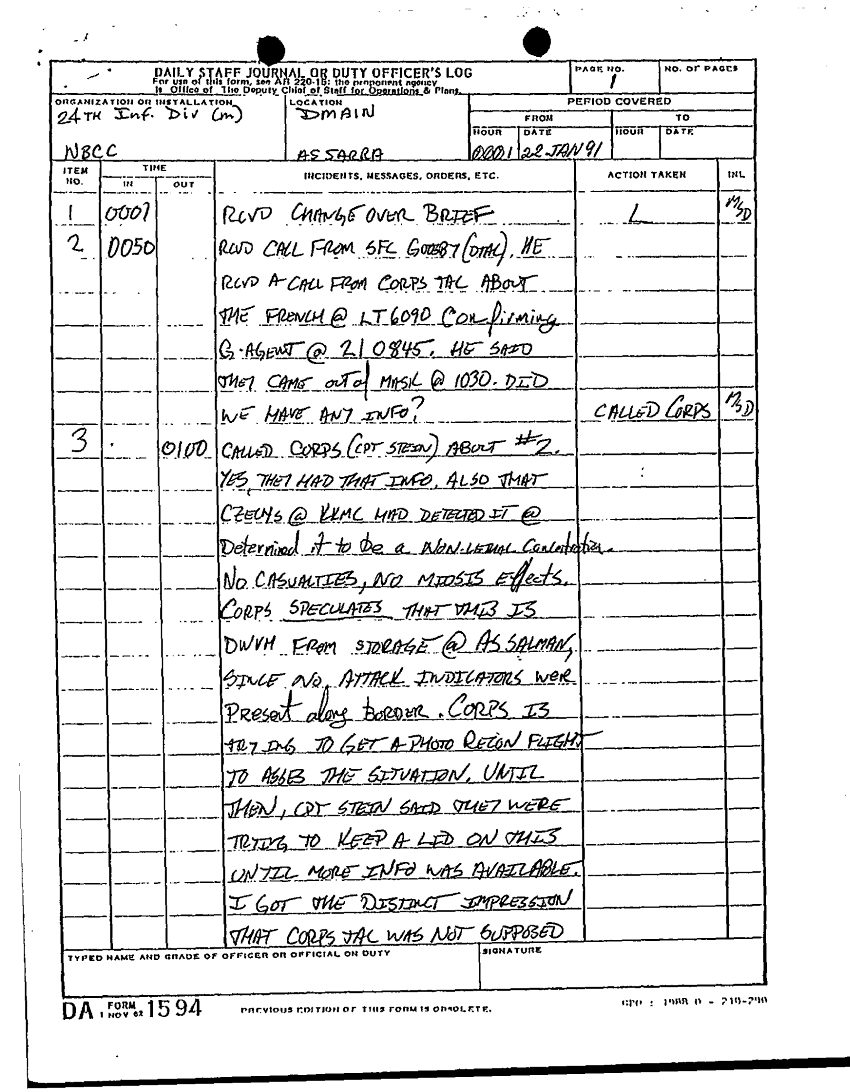 DAILY STAFF JOURNAL OR DUTY OFFICER'S LOG
For use of this form, see AR 220-15; the proponent agency
is Office of The Deputy Chief of Staff for Operations & Plans.
PAGE NO.
1
NO. OF PAGES
ORGANIZATION OR INSTALLATION
24TH Inf. Div (m)
NBCC
LOCATION
DMAIN
AS SARRA
PERIOD COVERED
FROM
TO
HOUR
DATE
HOUR
DATE
0001
22 JAN 91
ITEM NO.
TIME
IN
OUT
INCIDENTS, MESSAGES, ORDERS, ETC.
ACTION TAKEN
INL
1 0007 RCVD CHANGE OVER BRIEF L MSD
2 0050 RCVD CALL FROM SFC (DTAC). HE
RCVD A CALL FROM CORPS TAC ABOUT
THE FRENCH @ LT6090 Confirming
G-AGENT @ 210845. HE SAID
THEY CAME out of MASK @ 1030. DID
WE HAVE ANY INFO? CALLED CORPS MSD
3 0100 CALLED CORPS (CPT STEIN) ABOUT #2.
YES, THEY HAD THAT INFO, ALSO THAT
CZECHS @ KKMC HAD DETECTED IT @
Determined it to be a NON-LETHAL Concentration.
NO CASUALTIES, NO MIOSIS Effects.
CORPS SPECULATES THAT THIS IS
DWVH FROM STORAGE @ AS SALMAN,
SINCE NO ATTACK INDICATORS WER
Present along BORDER. CORPS IS
TRYING TO GET A PHOTO RECON FLIGHT
TO ASSES THE SITUATION. UNTIL
THEN, CPT STEIN SAID THEY WERE
TRYING TO KEEP A LID ON THIS
UNTIL MORE INFO WAS AVAILABLE.
I GOT THE DISTINCT IMPRESSION
THAT CORPS TAC WAS NOT SUPPOSED
TYPED NAME AND GRADE OF OFFICER OR OFFICIAL ON DUTY
SIGNATURE
DA FORM 1 NOV 62 1594
PREVIOUS EDITION OF THIS FORM IS OBSOLETE.
GPO : 1988 O - 210-290